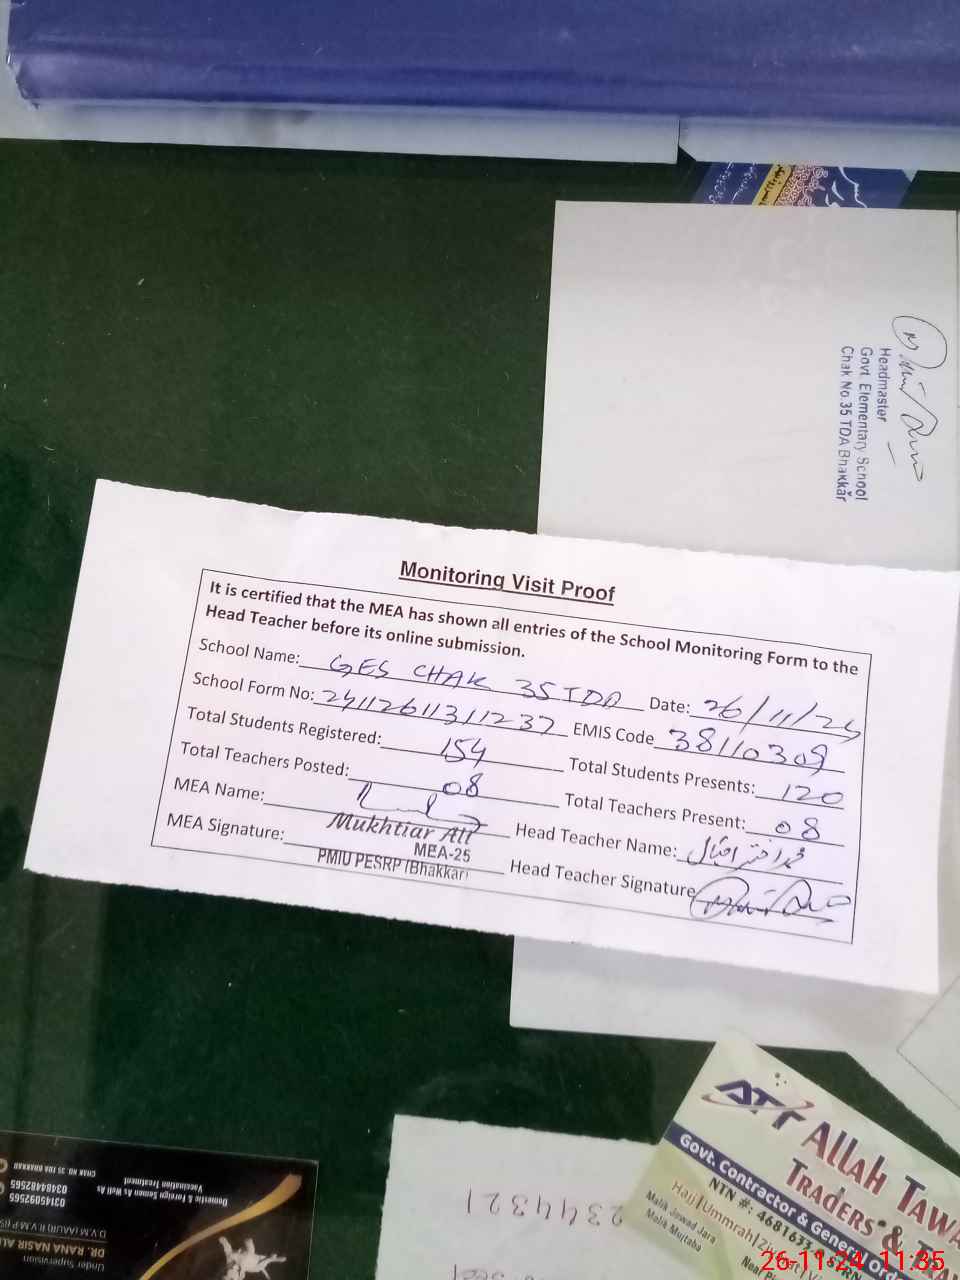 Headmaster
Govt. Elementary School
Chak No.35 TDA Bhakkar
Monitoring Visit Proof
It is certified that the MEA has shown all entries of the School Monitoring Form to the
Head Teacher before its online submission.
School Name: GES CHAK 35 TDA Date: 26/11/24
School Form No: EMIS Code 38110309
Total Students Registered: 154 Total Students Presents: 120
Total Teachers Posted: 08 Total Teachers Present: 08
MEA Name: Head Teacher Name: محمد اختر اقبال
Mukhtiar Ali
MEA Signature: MEA-25 Head Teacher Signature
PMIU PESRP (Bhakkar)
ATT ALLAH TAWA
TRADERS &
Govt. Contractor & General Or
NTN #: 4681633
Hajj/Ummrah/
Malik Jawad Jara
Malik Mujtaba
Near
2344321
Under Supervision
DR. RANA NASIR AL
03145092565
03484482565
CHAK NO. 35 TDA BHAKKAR
Domestic & Foreign Semen As Well As
Vaccination Treatment
26-11-24 11:35